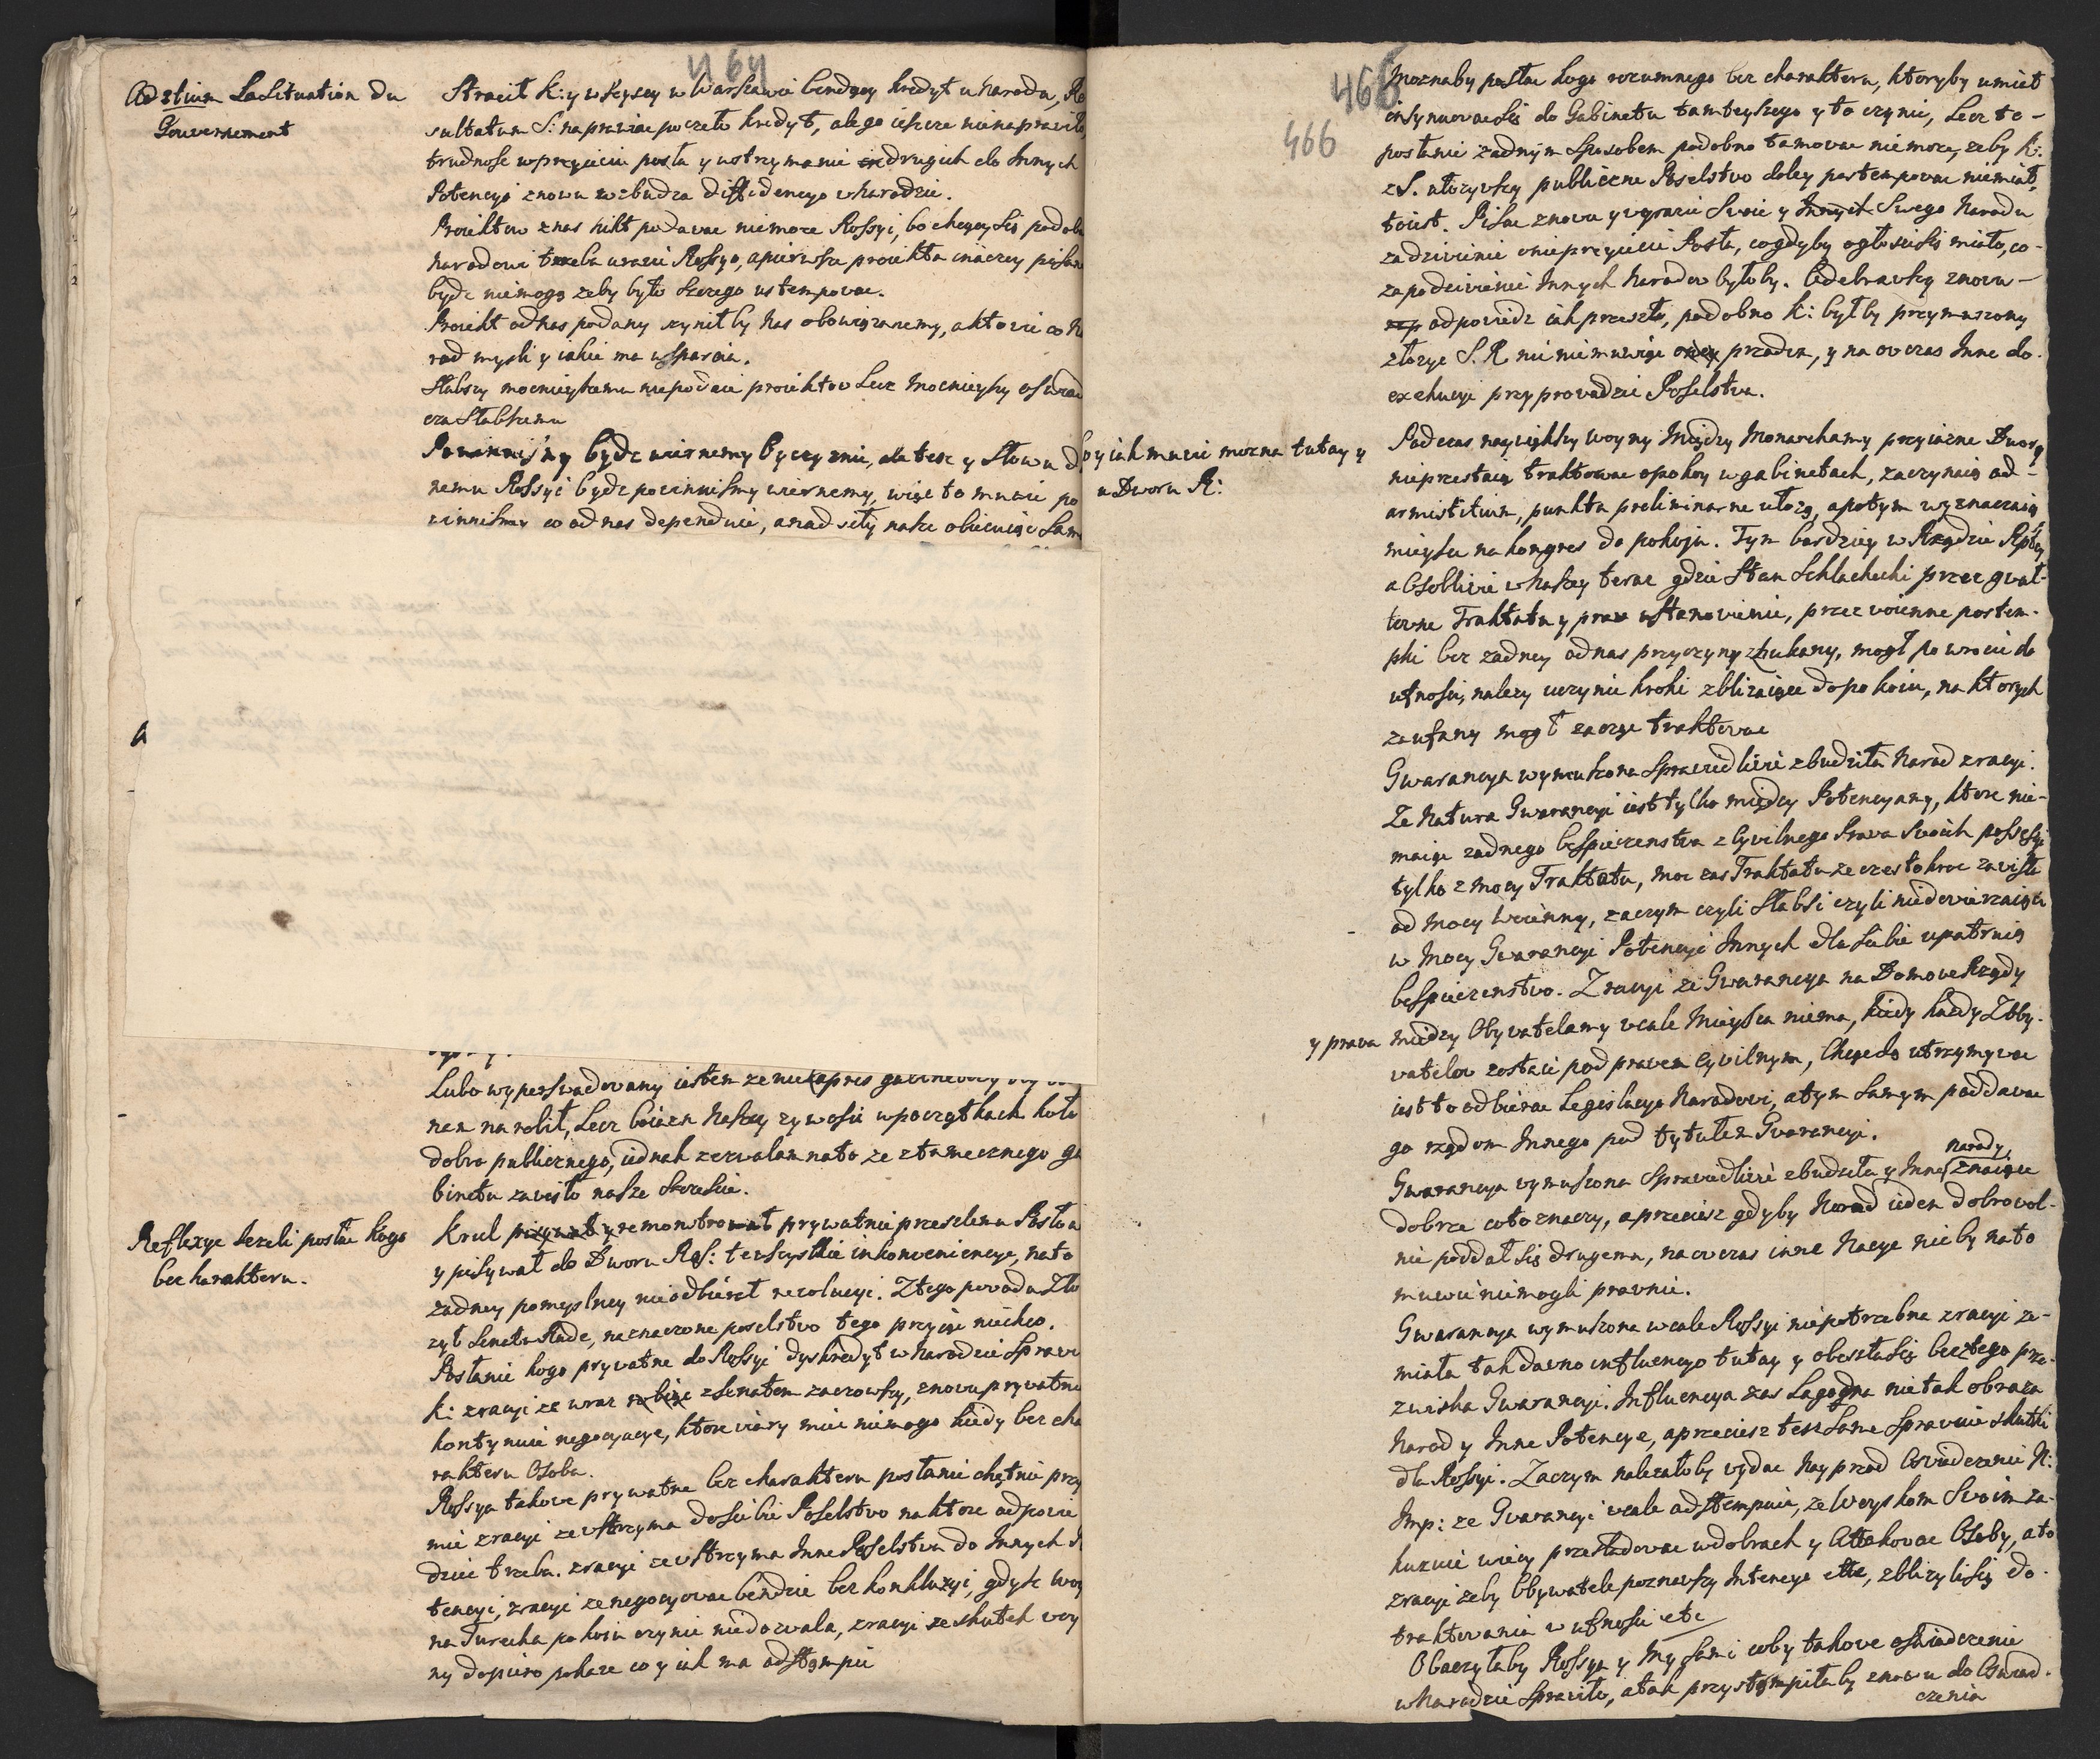 464
Ad 2dium La Situation du
Gouvernement
Stracił K: y wszyscy w Warszawie bendący kredyt u Narodu, Re
sultatum S: naprawiac poczeło kredyt, ale go ieszcze nienaprawiło
trudnosc w przyięciu posła y wstrzymanie drugich do Innych
Potencyi znowu wzbudza diffidencyą w Narodzie.
Proiektow z nas nikt podawac niemoze Rossyi, bo chcący się podob
Narodowi trzeba urazic Rossyą, a pierwsze proiekta inaczey pisane
bydz niemogą zeby było szczego ustempowac.
Proiekt od nas podany czyniłby Nas obowiązanemy, a kto wie co Na
rod mysli y iakie ma wsparcia.
Słabszy mocnieyszemu niepodaie proiektow Lecz Mocnieyszy oswiad
cza Słabszemu
Powinnismy bydz wiernemy Oyczyznie, ale tesz y Słowu da
nemu Rossyi bydz powinnismy wiernemy, więc to mowic po
winnismy co od nas dependuie, a nad siły nasze obiecuiąc Sam
by iak mowic mozna tutay y
u Dworu R:
Lubo wyperswadowany iestem ze nie
nam narobił, Lecz boiazn Naszey zywosci w początkach koło
dobra publicznego, iednak zezwalam na to ze z tamecznego ga
binetu zawisło nasze szczescie.
Reflexye Jezeli posłac kogo
bez charakteru.
Krul remonstrował prywatnie przeszlema Posłow
y pisywał do Dworu Ros: te wszystkie inkonweniencye, na to
zadney pomyslney nieodbierał rezolucyi. Z tego powodu Zło
zył Senatu Radę, naznaczone poselstwo tego przyiąc niechco.
Posłanie kogo prywatne do Rossyi dyskredyt w Narodzie Sprawi
K: z racyi ze wraz z Senatem zaczowszy, znowu prywatne
kontynuie negocyacye, ktore wiary miec niemogo kiedy bez cha
rakteru Osoba.
Rossya takowe prywatne bez charakteru posłanie chętnie przy
mie z racyi ze wstrzyma do siebie Poselstwo na ktore odpowie
dziec trzeba. z racyi ze wstrzyma Inne Poselstwa do Innych P
tencyi, z racyi ze negocyowac bendzie bez konkluzyi, gdysz woy
na Turecka pokoiu czynic niedozwala, z racyi ze skutek woy
ny dopiero pokaze co y iak ma odstąmpic
466
466
Moznaby posłac kogo rozumnego bez charakteru, ktoryby umiał
insynuowac się do Gabinetu tamteyszego y to czynic, Lecz to-
posłanie zadnym Sposobem podobno tamowac niemoze, zeby K:
z S. ułozywszy publiczne Poselstwo daley postempowac niemiał,
to iest. Pisac znowu y wyrazic Swoie y Swego Narodu
zadziwienie o nieprzyięcie Posła, co gdyby ogłosic się miało, co-
zapodziwienie Innych Narodow byłoby. Odebrawszy znowu-
odpowiedz iak przeszło, podobno K: byłby przymuszony
złozyc S. R nic niemuwiąc przodem, y na owczas Inne do
exekucyi przyprowadzic Poselstwa.
Podczas naywiększy woyny Między Monarchamy przyiazne Dwory
nieprzestaią traktowac o pokoy w gabinetach, zaczynaią od-
armistitium, punkta preliminarne ułozą, a potym wyznaczaią
mieysce na kongres do pokoju. Tym bardziey w Rządzie Rpltey
a Osobliwie w Naszey teraz gdzie Stan Schlachecki przez gwał-
towne Traktatu y praw ustanowienie, przez woienne postem-
pki bez zadney od nas przyczyny zhukany, mogł powrocic do
ufnosci, nalezy uczynic kroki zblizaiące do pokoiu, na ktorych
zaufany mogł zacząc traktowac
Gwarancya wymuszona Sprawiedliwie zbudziła Narod z racyi.
Ze Natura Gwarancyi iest tylko między Potencyamy, ktore nie-
maiąc zadnego bespieczenstwa z Cywilnego Prawa Swoich possessyi
tylko z mocy Traktatu, moc zas Traktatu ze czestokroc zawisła
od Mocy Woienny, zaczym czyli Słabsi czyli niedowierzaiący
w Mocy Gwarancyi Potencyi Innych dla Siebie upatruią
bespieczenstwo. Z racyi ze Gwarancya na Domowe Rządy
y prawa między Obywatelamy wcale Mieysca niema, kiedy kazdy Z Oby-
watelow zostaie pod prawem Cywilnym, Chęcedo utrzymywac
iest to odbierac Legislacyą Narodowi, a tym Samym poddawac
go rządom Innego pod tytułem Gwarancyi.
Gwarancya wymuszona Sprawiedliwie zbudziła y Inne Narody, znaiące
dobrze co to znaczy, a przeciesz gdyby Narod ieden dobrowol-
nie poddał się drugiemu, na owczas inne Nacye nic by na to
muwic niemogli prawnie.
Gwarancya wymuszona wcale Rossyi niepotrzebna z racyi ze-
miała tak dawno influencyą tutay y obeszła się bez tego prze-
zwiska Gwarancyi. Influencya zas Łagodna nietak obraza
Narod y Inne Potencye, a przeciesz tesz Same Sprawuie skutki
dla Rossyi. Zaczym nalezałoby wydac Nayprzod Oswiadczenie N:
Imp: ze Gwarancyi wcale odstempuie, ze Woyskom Swoim za-
kazuie więcy przesladowac w dobrach y Attakowac Osoby, a to
z racyi zeby Obywatele poznawszy Intencye etc, zblizyli się do
traktowania w ufnosci etc
Obaczyłaby Rossya y My sami coby takowe oswiadczenie
w Narodzie Sprawiło, a tak przystąmpiłaby znowu do Oswiad-
czenia